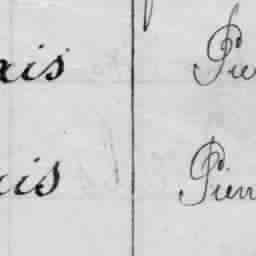 xis Pie
xis Pierr